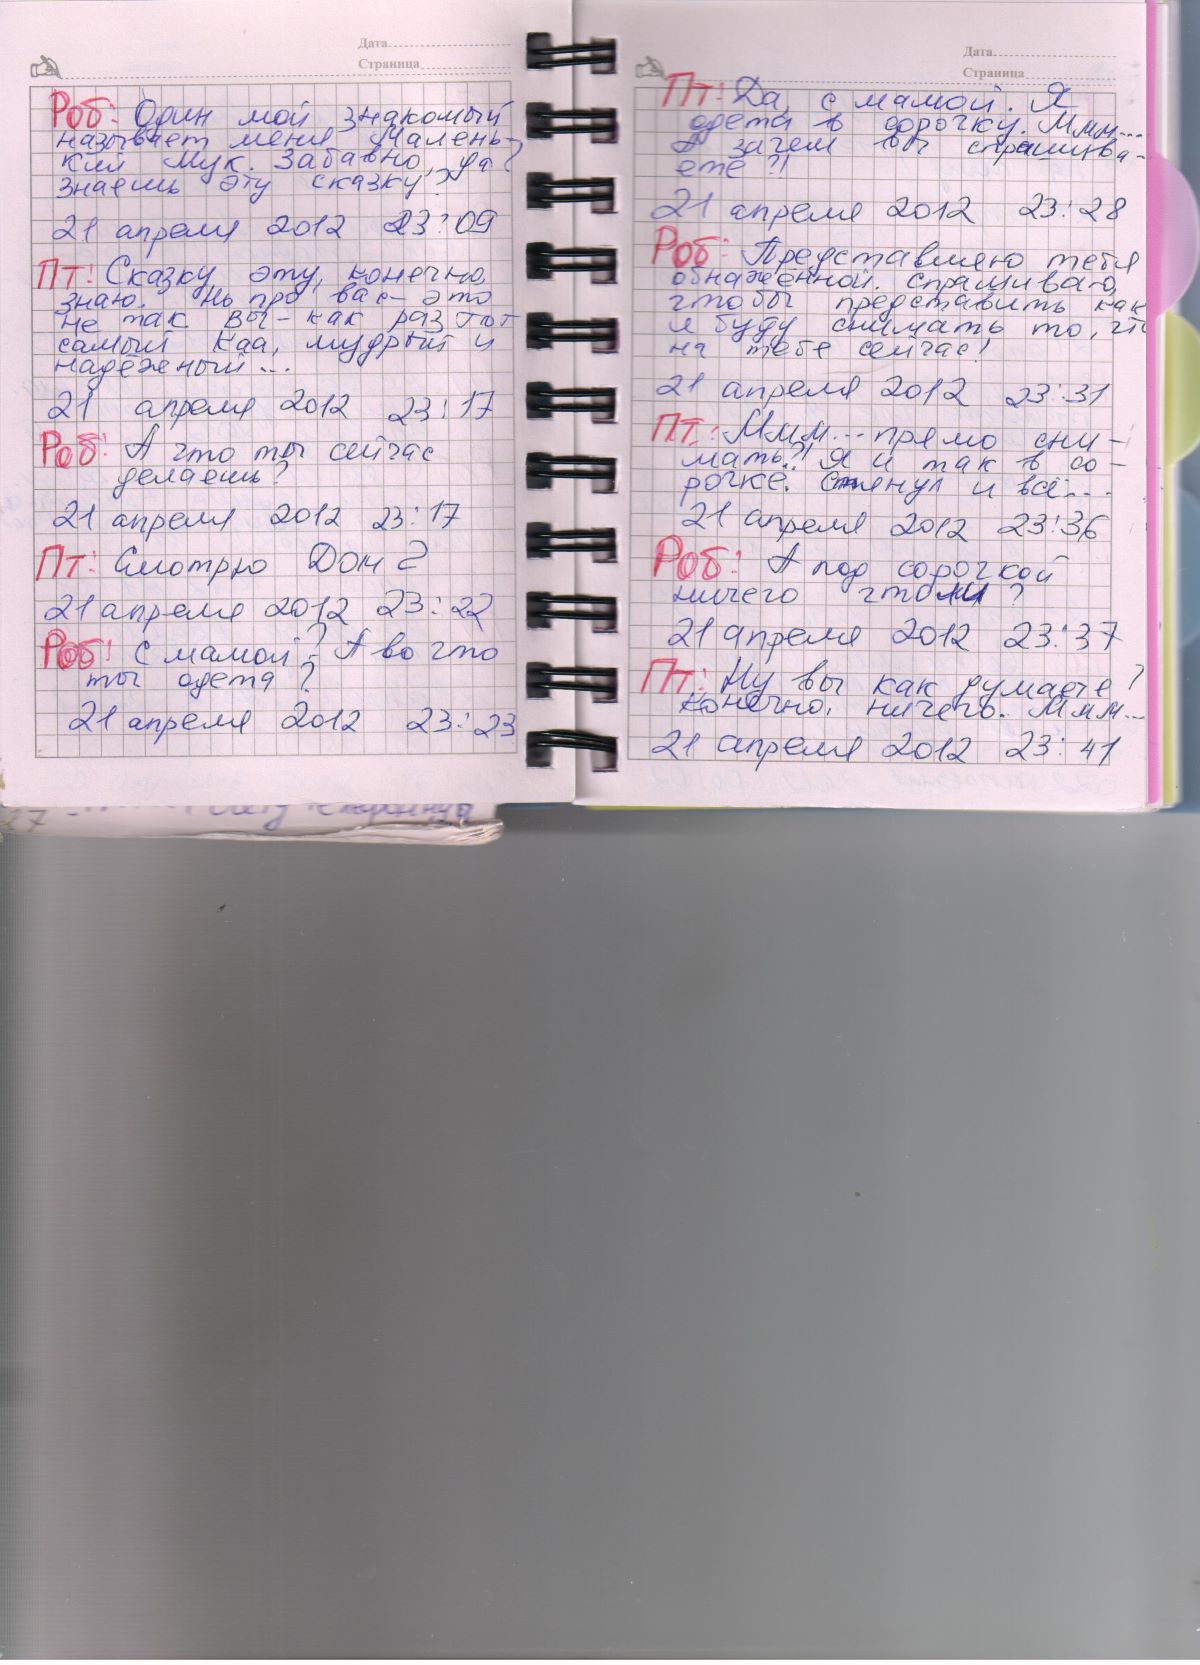 Дата
Страница
Роб: Один мой знакомый
называет меня Малень-
кий Мук. Забавно, да?
Знаешь эту сказку?
21 апреля 2012 23:09
Пт: Сказку эту, конечно,
знаю. Но про вас - это
не так. Вы - как раз тот
самый Каа, мудрый и
надёжный...
21 апреля 2012 23:17
Роб: А что ты сейчас
делаешь?
21 апреля 2012 23:17
Пт: Смотрю Дом 2
21 апреля 2012 23:22
Роб: С мамой? А во что
ты одета?
21 апреля 2012 23:23
Дата
Страница
Пт: Да, с мамой. Я
одета в сорочку. Ммм...
А зачем вы спрашива-
ете?!
21 апреля 2012 23:28
Роб: Представляю тебя
обнажённой. Спрашиваю,
чтобы представить как
я буду снимать то, что
на тебе сейчас!
21 апреля 2012 23:31
Пт: Ммм... прямо сни-
мать?! Я и так в со-
рочке. Стянул и всё...
21 апреля 2012 23:36
Роб: А под сорочкой
ничего что ли?
21 апреля 2012 23:37
Пт: Ну вы как думаете?
Конечно, ничего. Ммм...
21 апреля 2012 23:41